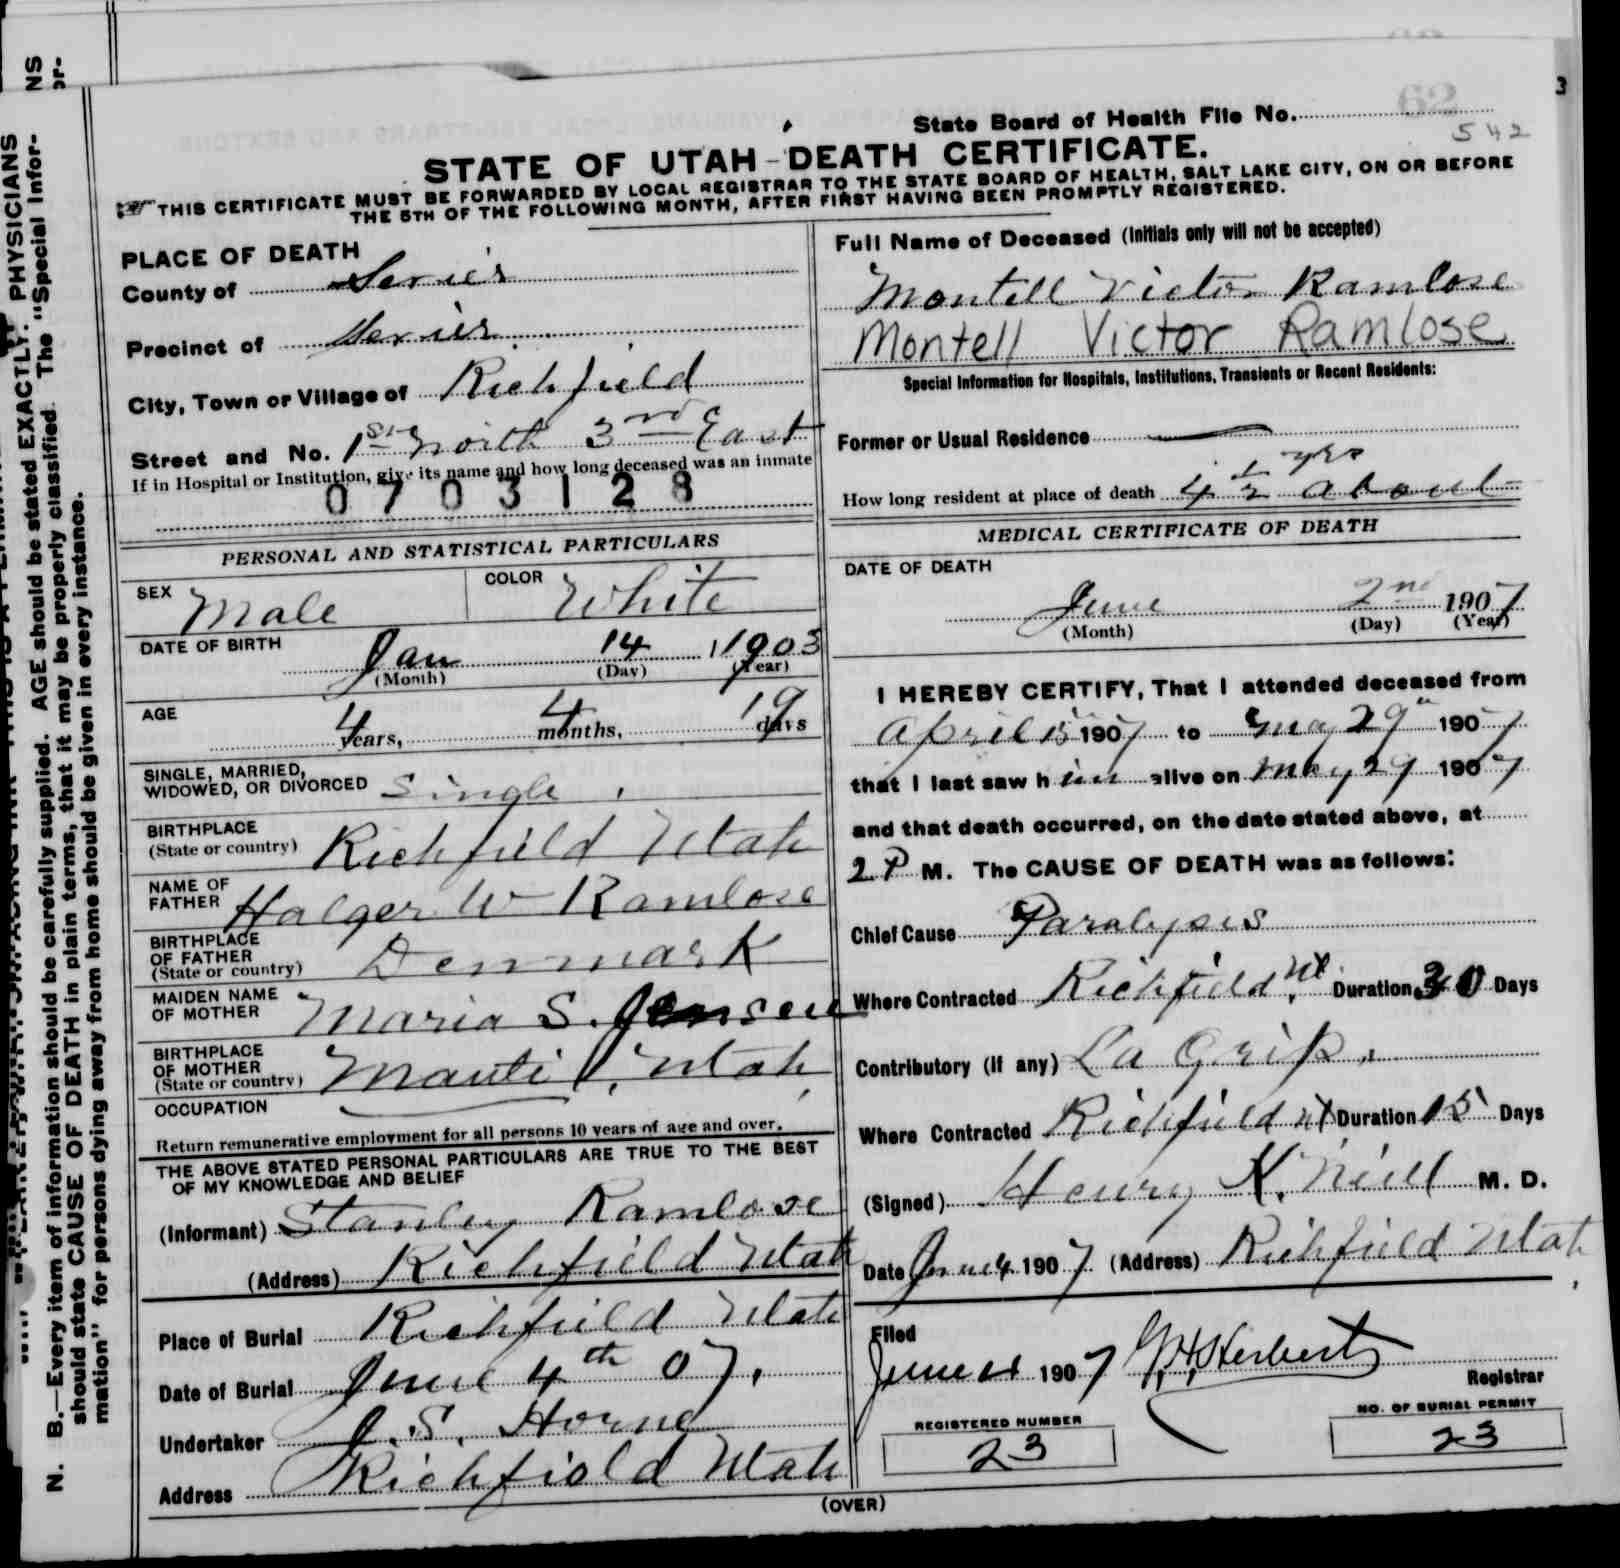 State Board of Health File No. 62
542
STATE OF UTAH - DEATH CERTIFICATE.
THIS CERTIFICATE MUST BE FORWARDED BY LOCAL REGISTRAR TO THE STATE BOARD OF HEALTH, SALT LAKE CITY, ON OR BEFORE
THE 5TH OF THE FOLLOWING MONTH, AFTER FIRST HAVING BEEN PROMPTLY REGISTERED.
PLACE OF DEATH
County of Sevier
Precinct of Sevier
City, Town or Village of Richfield
Street and No. 1st North 3rd East
If in Hospital or Institution, give its name and how long deceased was an inmate
0703128
PERSONAL AND STATISTICAL PARTICULARS
SEX Male COLOR White
DATE OF BIRTH Jan 14 1903
(Month) (Day) (Year)
AGE 4 years, 4 months, 19 days
SINGLE, MARRIED,
WIDOWED, OR DIVORCED Single
BIRTHPLACE
(State or country) Richfield Utah
NAME OF
FATHER Halger W Ramlose
BIRTHPLACE
OF FATHER
(State or country) Denmark
MAIDEN NAME
OF MOTHER Maria S. Jensen
BIRTHPLACE
OF MOTHER
(State or country) Manti, Utah,
OCCUPATION
Return remunerative employment for all persons 10 years of age and over.
THE ABOVE STATED PERSONAL PARTICULARS ARE TRUE TO THE BEST
OF MY KNOWLEDGE AND BELIEF
(Informant) Stanley Ramlose
(Address) Richfield Utah
Place of Burial Richfield Utah
Date of Burial June 4th 07.
Undertaker J. S. Horne
Address Richfield Utah
Full Name of Deceased (Initials only will not be accepted)
Montell Victor Ramlose
Montell Victor Ramlose
Special Information for Hospitals, Institutions, Transients or Recent Residents:
Former or Usual Residence
How long resident at place of death 4 1/2 yrs about
MEDICAL CERTIFICATE OF DEATH
DATE OF DEATH
June 2nd 1907
(Month) (Day) (Year)
I HEREBY CERTIFY, That I attended deceased from
April 15 1907 to May 29 1907
that I last saw him alive on May 29 1907
and that death occurred, on the date stated above, at
2 P M. The CAUSE OF DEATH was as follows:
Chief Cause Paralysis
Where Contracted Richfield, Ut. Duration Days
Contributory (if any) La Grip.
Where Contracted Richfield Ut Duration 15 Days
(Signed) Henry K. Neill M. D.
Date June 4 1907 (Address) Richfield Utah
Filed
June 4 1907 Herbert
Registrar
REGISTERED NUMBER
23
NO. OF BURIAL PERMIT
23
(OVER)
N. B.—Every item of information should be carefully supplied. AGE should be stated EXACTLY. PHYSICIANS
should state CAUSE OF DEATH in plain terms, that it may be properly classified. The "Special Infor-
mation" for persons dying away from home should be given in every instance.